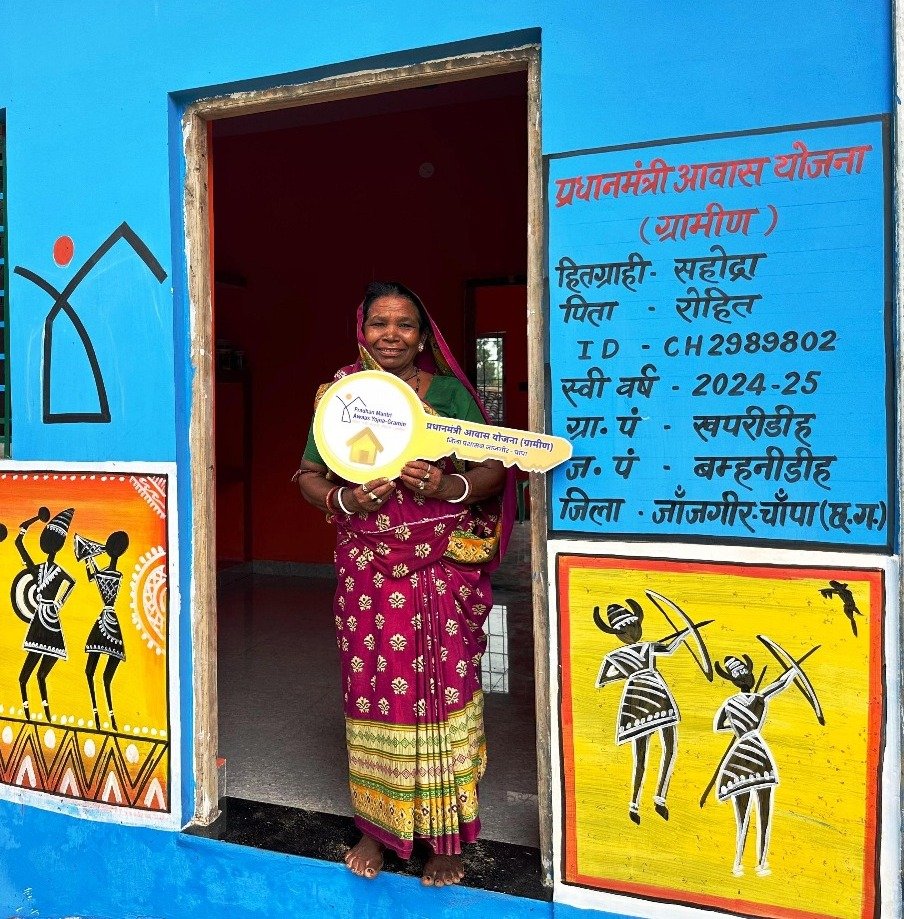 प्रधानमंत्री आवास योजना
(ग्रामीण)
हितग्राही- सहोद्रा
पिता - रोहित
ID - CH2989802
स्वी वर्ष - 2024-25
ग्रा. पं - खपरीडीह
ज. पं - बम्हनीडीह
जिला - जाँजगीर-चाँपा (छ.ग.)
Pradhan Mantri
Awaas Yojna-Gramin
प्रधानमंत्री आवास योजना (ग्रामीण)
जिला प्रशासन जांजगीर - चांपा